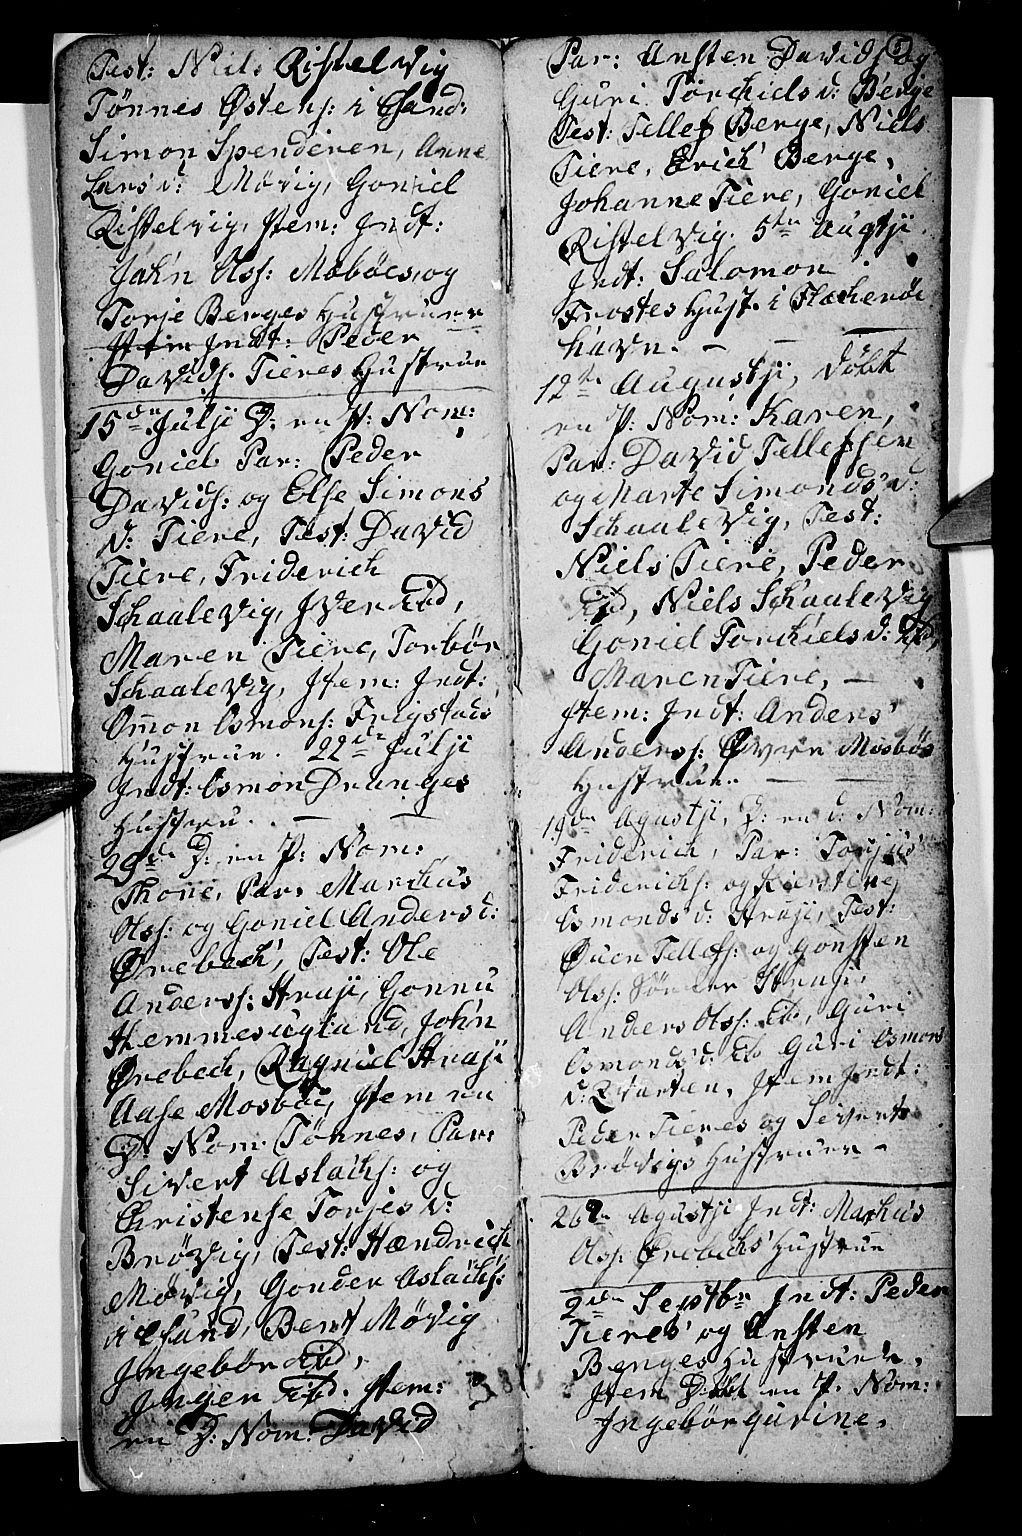 Test: Niels Ristelvig
Tønnes Østens: i Esand:
Simon Spenderen, Anne
Lars d: Møvig, Goniel
Ristelvig, Item: Indt:
Jahn Olss: Mebøes, og
Torje Berges Hustruer
Item Indt: Peder
Davids: Tieres Hustrue
15de Julji D: en P: Nom:
Goniel Par: Peder
Davids: og Else Simons
d: Tiere, Test: David
Tiere, Friderich
Schaalevig, Iver Ibd,
Maren Tiere, Torbør
Schaalevig, Item: Indt:
Omon Osmons: Frigstads
Hustrue. 22de Julji
Indt: Osmon Dranges
Hustru. — —
29de D: en P: Nom:
Thone, Par: Marchus
Olss: og Goniel Anders d:
Ørebech, Test: Ole
Anderss: Straji, Gonnu
Hemmesugland, John
Ørebech, Ragniel Straji
Aase Mosbøe, Item en
D: Nom: Tønnes, Par:
Sivert Aslachs: og
Christense Torjes d:
Brøvig, Test: Hændrich
Møvig, Gonder Aslachs:
i Esund, Bent Møvig
Ingebør Ibd,
Inger Ibd. Item:
en D: Nom: David
Par: Ansten Davids og
Guri Torchiels d: Berge
Test: Tellef Berge, Niels
Tiere, Erich Berge,
Johanne Tiere, Goniel
Ristelvig. 5te Augtji
Indt: Salomon
Frostes Hust. i Flecherøe
havn. — —
12te Augustji, døbt
en P: Nom: Karen,
Par: David Tellefsen
og Marte Simonds d:
Schaalevig, Test:
Niels Tiere, Peder
Ibd, Niels Schaalevig
Goniel Torchiels d: Ibd,
Maren Tiere, —
Item: Indt: Anders
Anderss: Øvre Mosbøe
Hustrue. — —
19de Agustji, D: en d: Nom:
Friderich, Par: Torjus
Friderichs: og Kierstine
Osmonds d: Straji, Test:
Øuen Tellefs: og Gonsten
Olss: Sønder Straji,
Anders Olss: Ib, Guri
Osmonds d: Ib Guri Osmons
d: Qvarten, Item Indt:
Peder Tieres og Siverts
Brøvigs Hustruer —
26de Agustji Indt: Markus
Olss: Ørebechs Hustrue
2den Septbr Indt: Peder
Tieres og Ansten
Berges Hustruer,
Item Døbt en P. Nom:
Ingebør gurine,